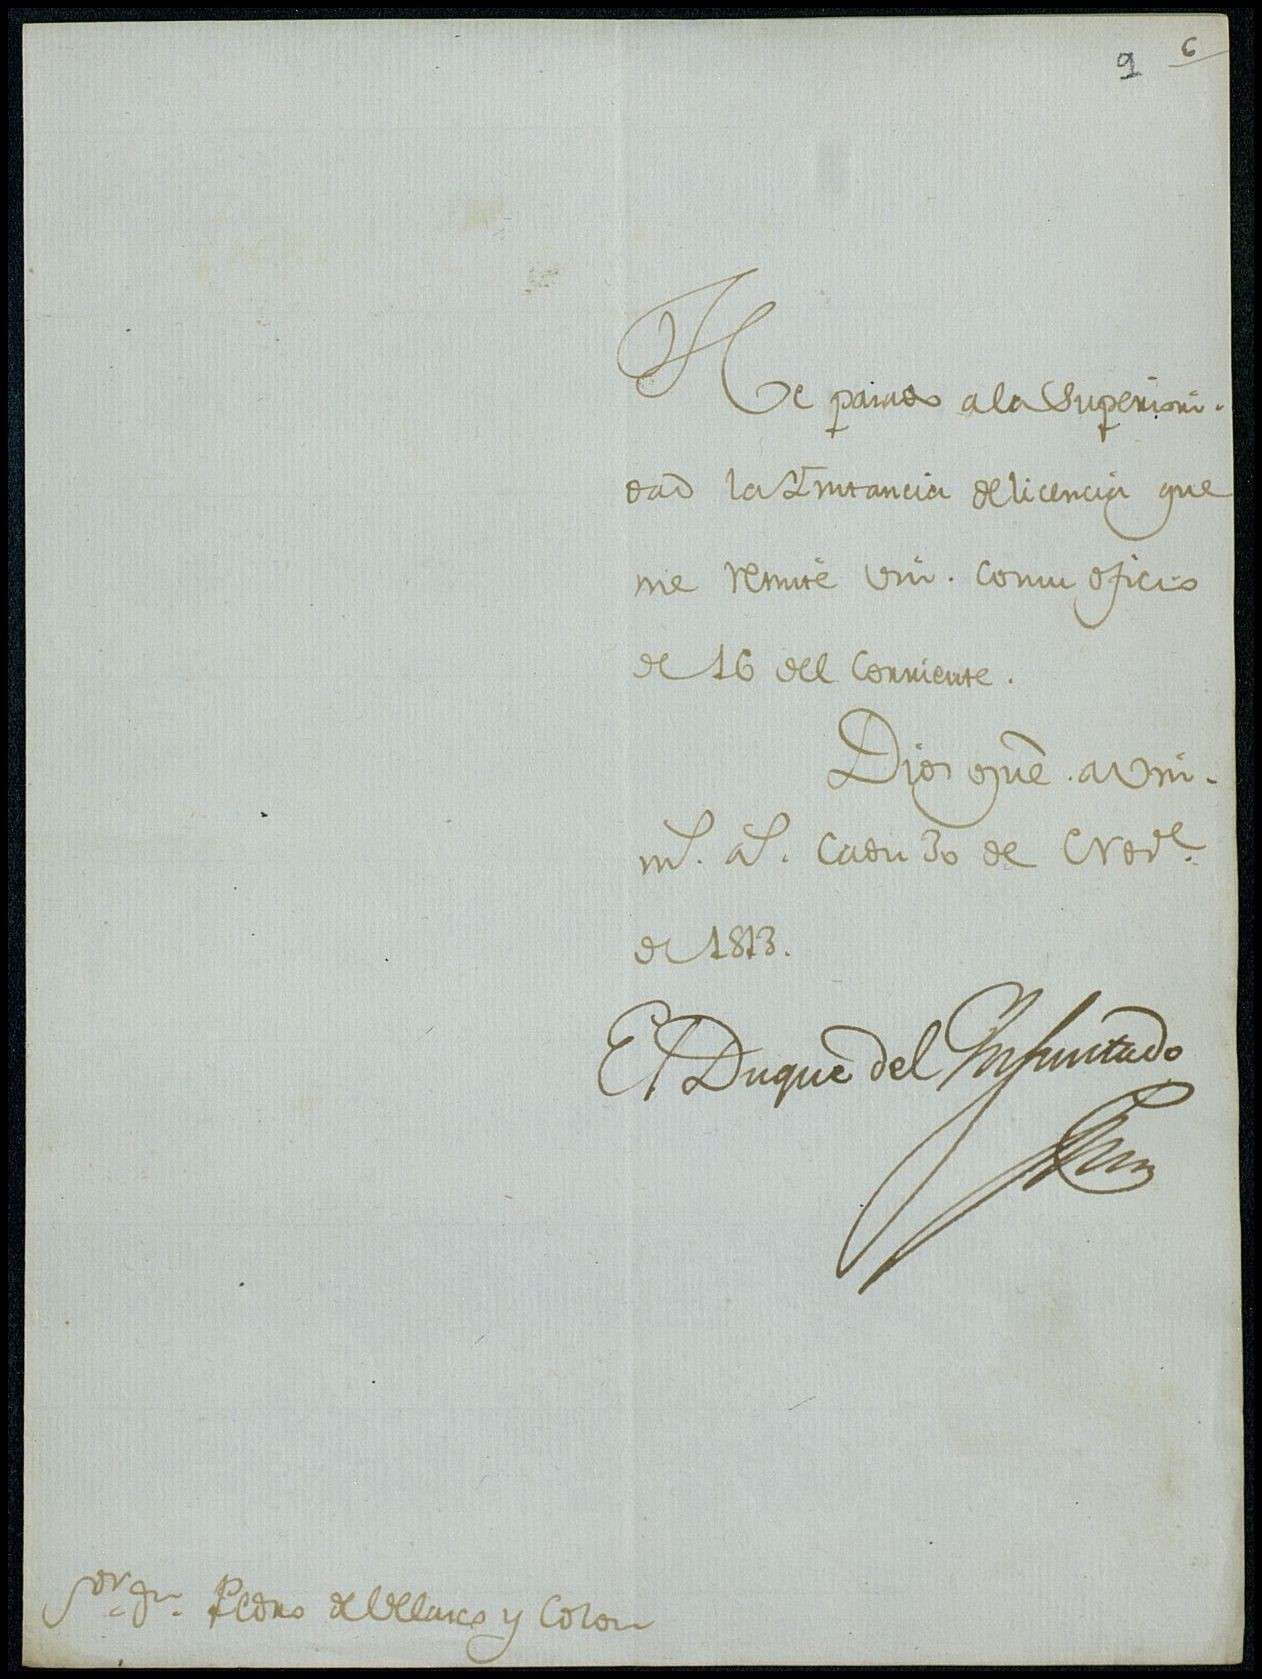 9 6
He pasado a la Superiori-
dad la Instancia de licencia que
me remite Vm. con su oficio
de 16 del Corriente.
Dios gue. a Vm.
ms. as. Cadiz 30 de
de 1813.
El Duque del Infantado
Sor. Dn. Pedro de Velasco y Colon